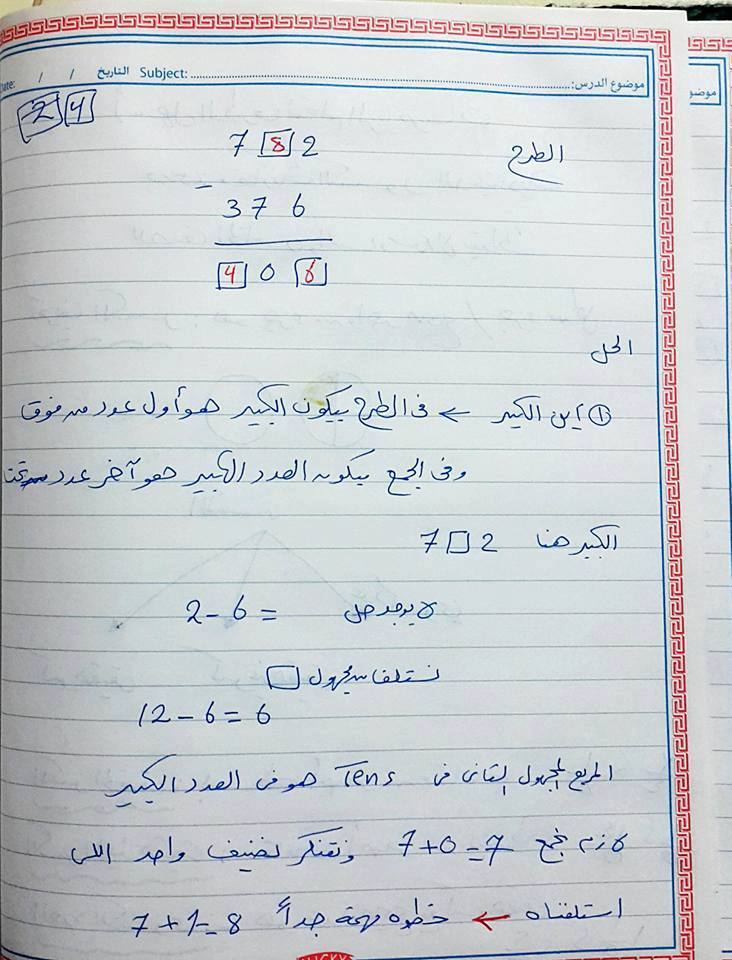 موضوع الدرس: Subject: التاريخ / / Date:
24
الطرح
7 8 2
-
3 7 6
4 0 6
الحل
① أين الكبير ← فى الطرح بيكون الكبير هو أول عدد من فوق
وفى الجمع بيكون العدد الكبير هو آخر عدد من تحت
الكبير هنا 7 □ 2
2 - 6 = لا يوجد حل
نستلف من مجهول □
12 - 6 = 6
المربع المجهول الثانى فى Tens هو فى العدد الكبير
لازم نجمع 7 + 0 = 7 ونفتكر نضيف واحد اللى
استلفناه ← خطوه مهمة جداً 7 + 1 = 8
LUCKY